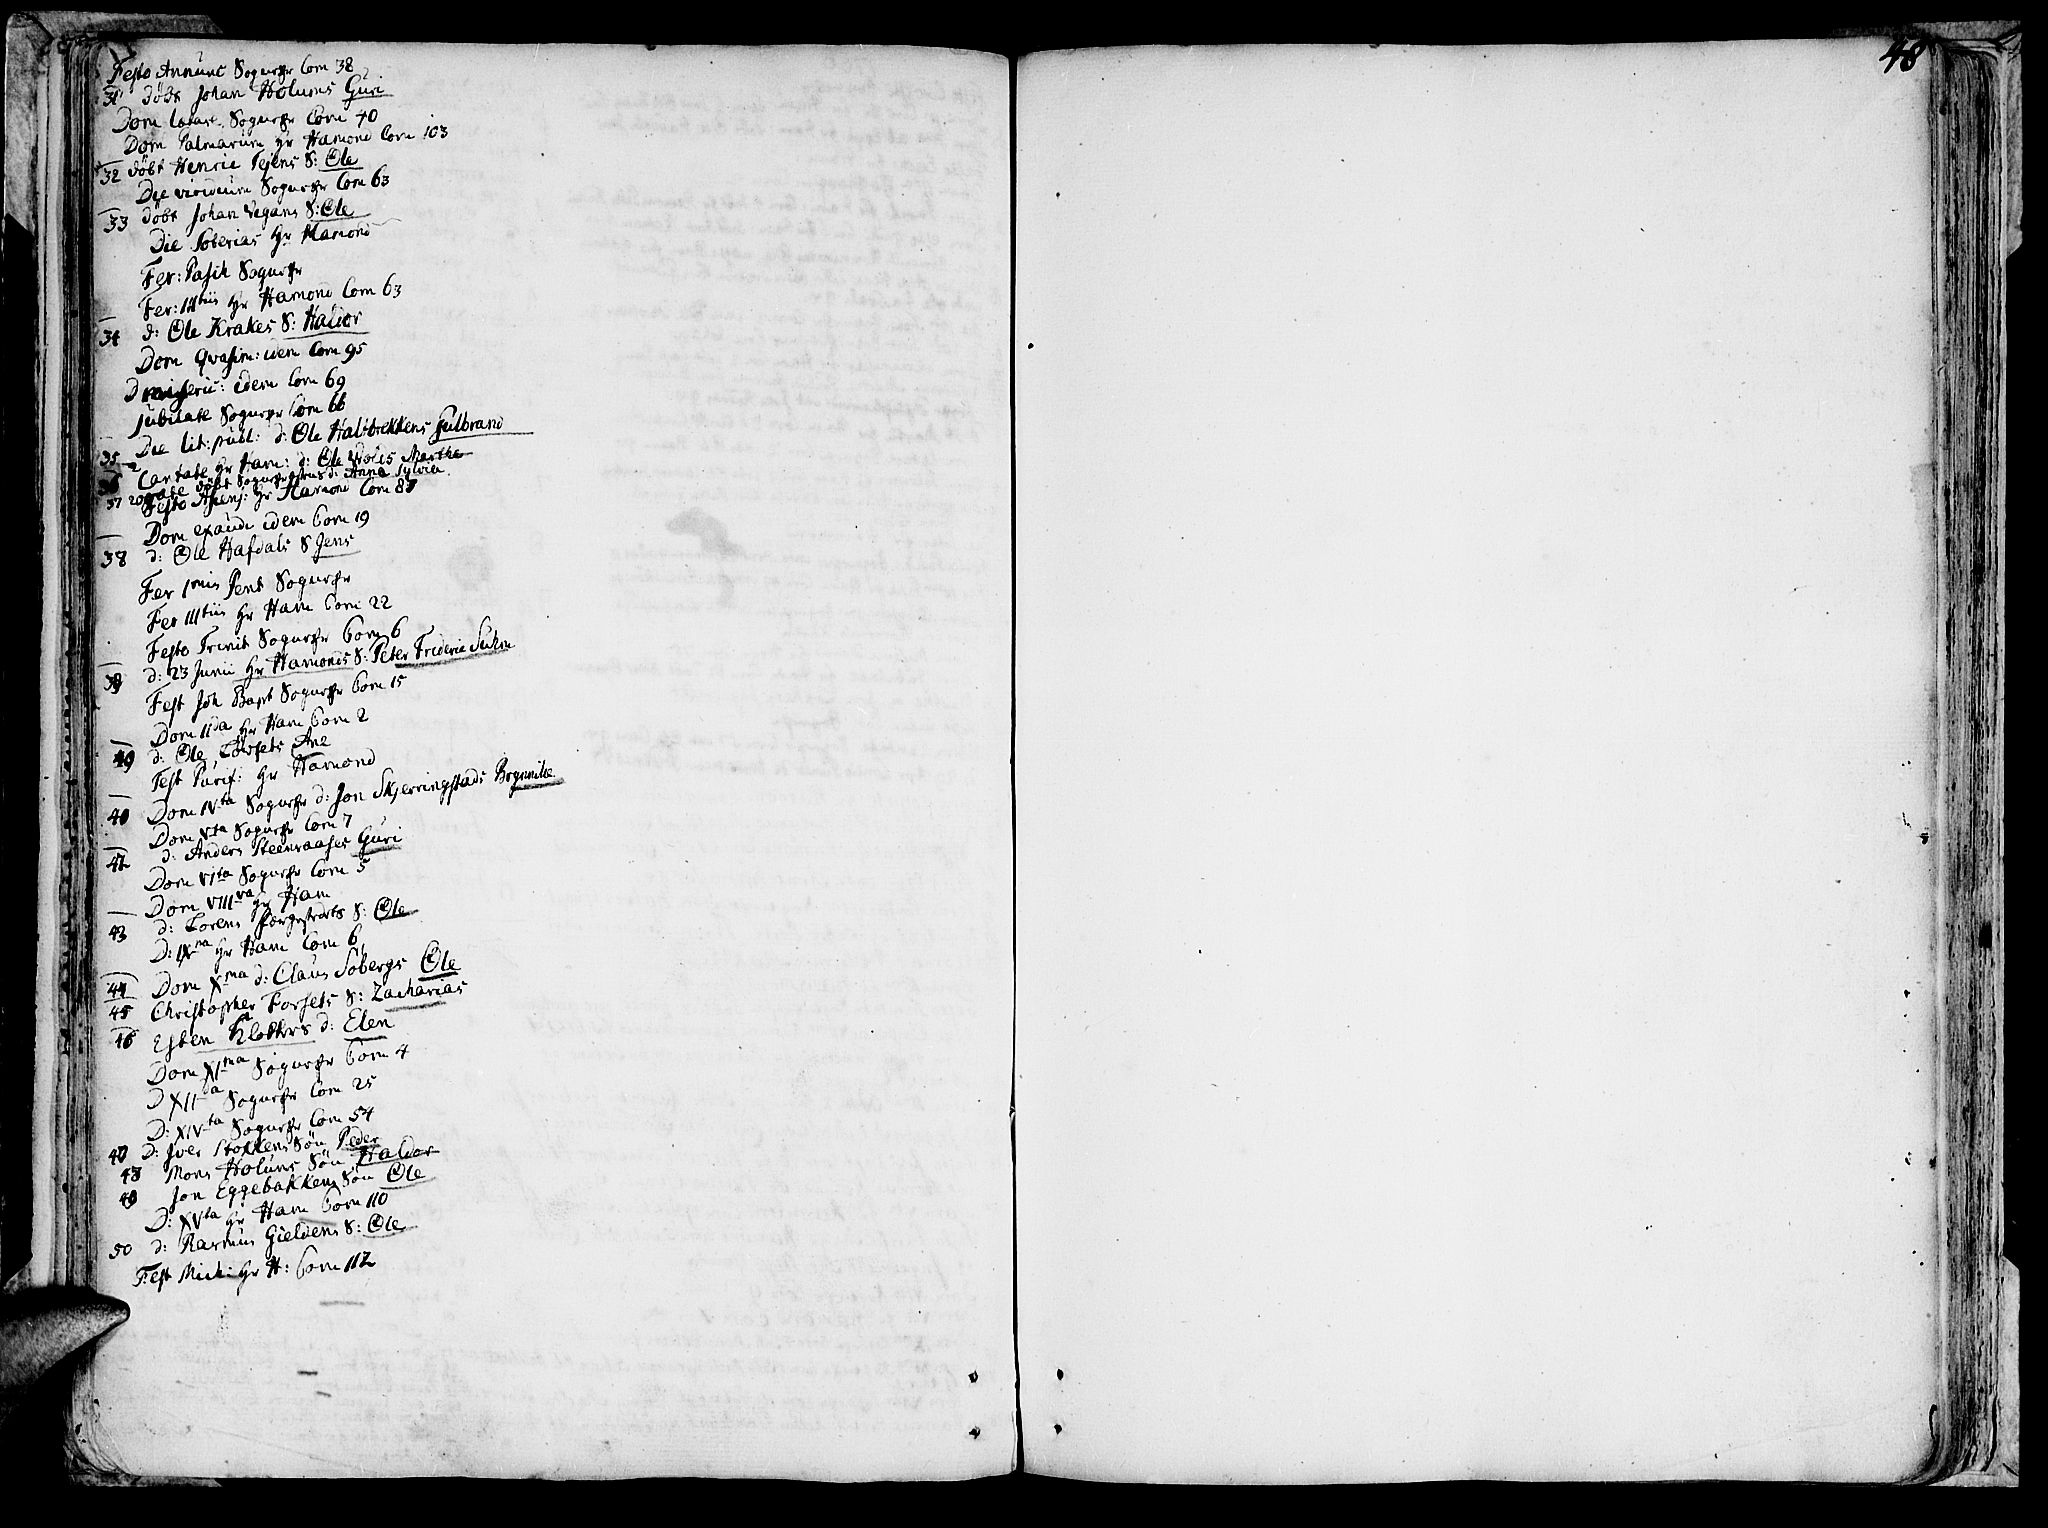 48
Festo Annunc Sognepr Com 38
31 døbt Johan Holums Guri
Dom Lætare Sognepr Com 40
Dom Palmarum Hr Hamond Com 103
32 døbt Henric S: Ole
Die viridium Sognepr Com 63
33 døbt Johan Vegans S: Ole
Die Hr Hamond
Fer: Pasch Sognepr
Fer: IIItiis Hr Hamond Com 63
34 d: Ole Krakes S: Haldor
Dom Qvasim: idem Com 95
D miseric: idem Com 69
Jubilate Sognepr Com 66
35 Die lit: publ: d: Ole Halsbekkens Gulbrand
36 Cantate Hr Ham: d: Ole Marthe
37 rogate døbt d: Anna Sylvia
Festo Ascens: Hr Hamond Com 87
Dom exaudi idem Com 19
38 d: Ole Hafdals S Jens
Fer Imis Pent Sognepr
Fer IIItiis Hr Ham Com 22
Festo Trinit Sognepr Com 6
39 d: 23 Junii Hr Hamonds S: Peter Frideric Suhm
Fest Joh Bapt Sognepr Com 15
Dom IIda Hr Ham Com 2
40 d: Ole Ane
Fest Purif: Hr Hamond
40 Dom IVta Sognepr d: Jon Skjerringstads Bryнnilde
Dom Vta Sognepr Com 7
42 d: Anders Steenraases Guri
Dom VIta Sognepr Com 5
Dom VIIIva Hr Ham
43 d: Lorens S: Ole
D: IXna Hr Ham Com 6
44 Dom Xma d: Claus Sobergs Ole
45 Christopher Forsets S: Zacharias
46 Esten Klokkers d: Elen
Dom XIma Sognepr Com 4
D XIIda Sognepr Com 25
D: XIVta Sognepr Com 54
47 D: Iver Stokkens Søn Peder
48 Mons Holums Søn Haldor
49 Jon Eggebakkens Søn Ole
D: XVta Hr Ham Com 110
50 d: Rasmus Gieldens S: Ole
Fest Mich: Hr H: Com 112